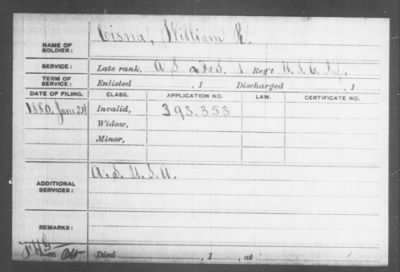 NAME OF SOLDIER: Cisna, William R.
SERVICE: Late rank, A.S. & H.S. 1 Reg't U.S.C. Inf.
TERM OF SERVICE: Enlisted , 1 Discharged , 1
DATE OF FILING. CLASS. APPLICATION NO. LAW. CERTIFICATE NO.
1880, Jan. 24 Invalid, 393.353
Widow,
Minor,
ADDITIONAL SERVICES: A.S. U.S.A.
REMARKS:
Died , 1 , at